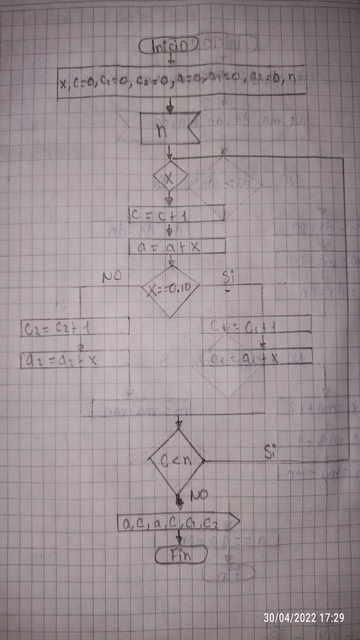 Inicio
x, c=0, c1=0, c2=0, a=0, a1=0, a2=0, n
n
x
c = c+1
a = a+x
NO
x==0.10
Si
c2 = c2+1
c1 = c1+1
a2 = a2+x
= a1+x
c<n
Si
NO
a, c, a, c, c1, c2
Fin
30/04/2022 17:29